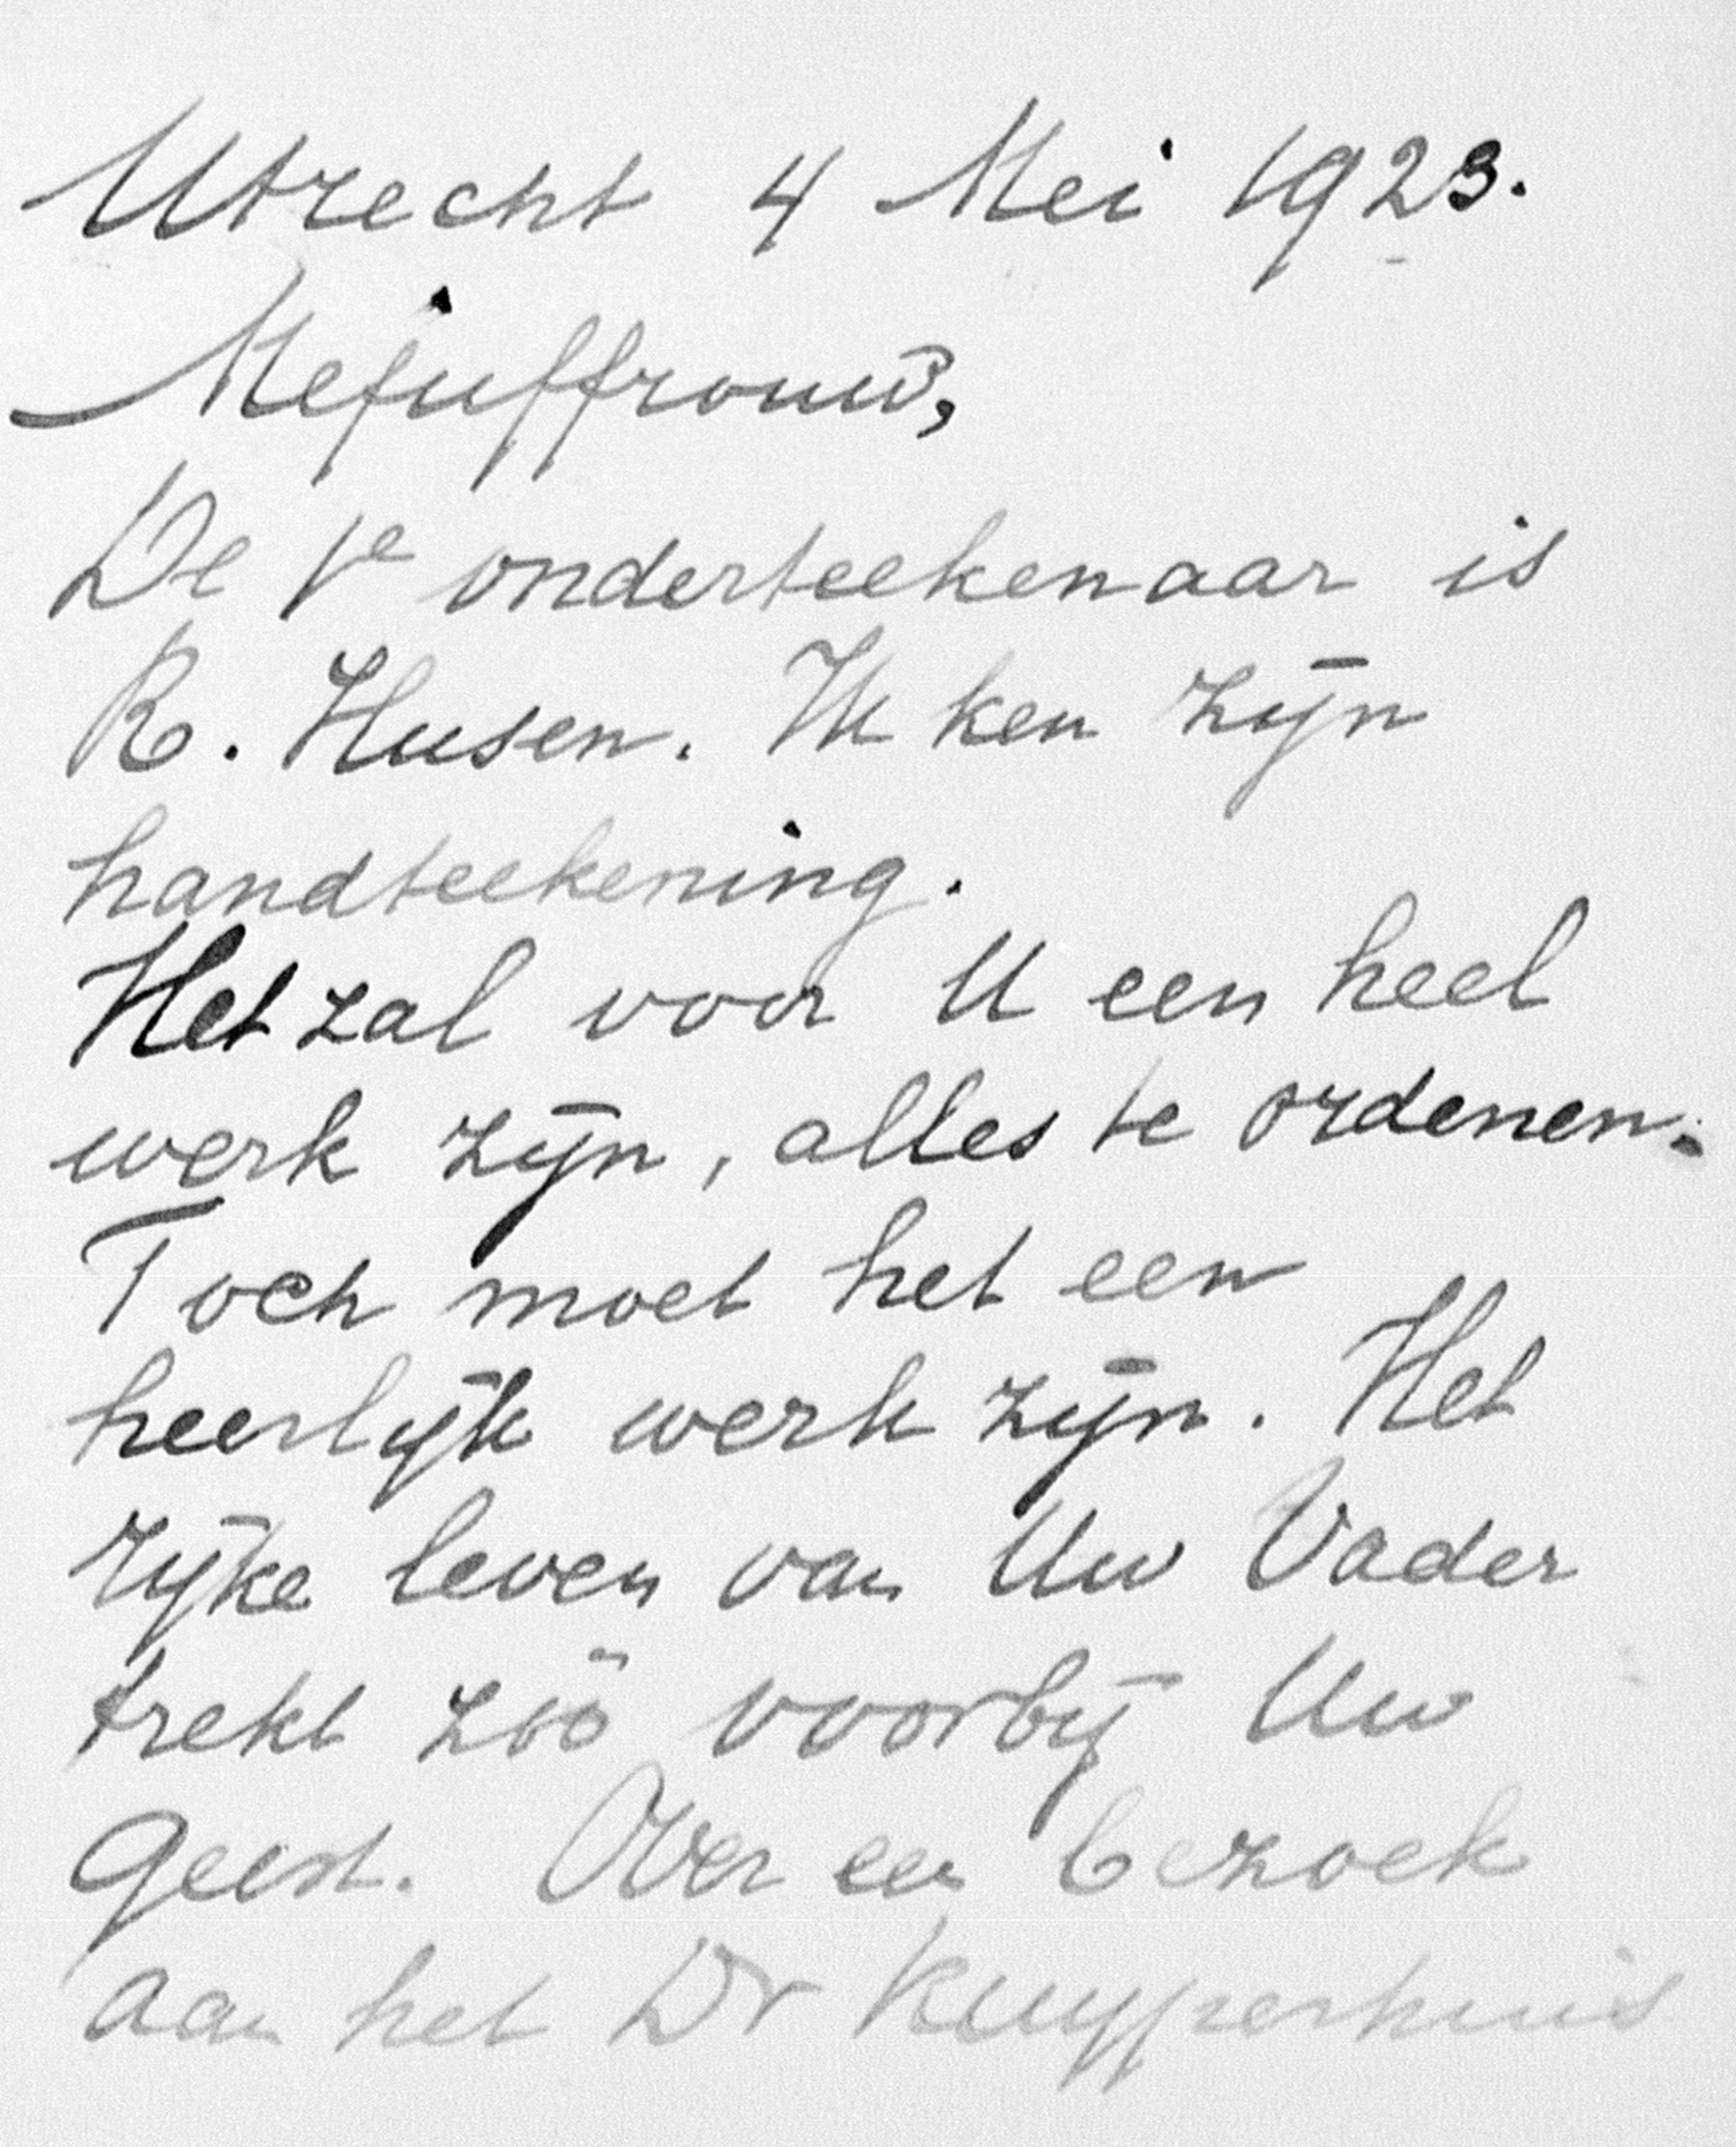 Utrecht 4 Mei 1923.
Mejuffrouw,
De 1e onderteekenaar is
R. Husen. Ik ken zijn
handteekening.
Het zal voor U een heel
werk zijn, alles te ordenen.
Toch moet het een
heerlijk werk zijn. Het
rijke leven van Uw Vader
trekt zoo voorbij Uw
geest. Over een bezoek
aan het Dr Kuyperhuis